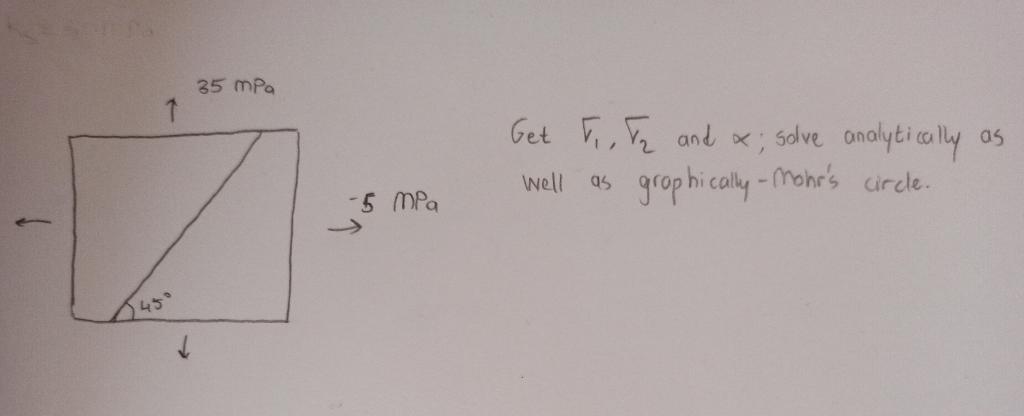 35 mPa
Get σ₁, σ₂ and α; solve analytically as
well as graphically - Mohr's circle.
-5 MPa
45°